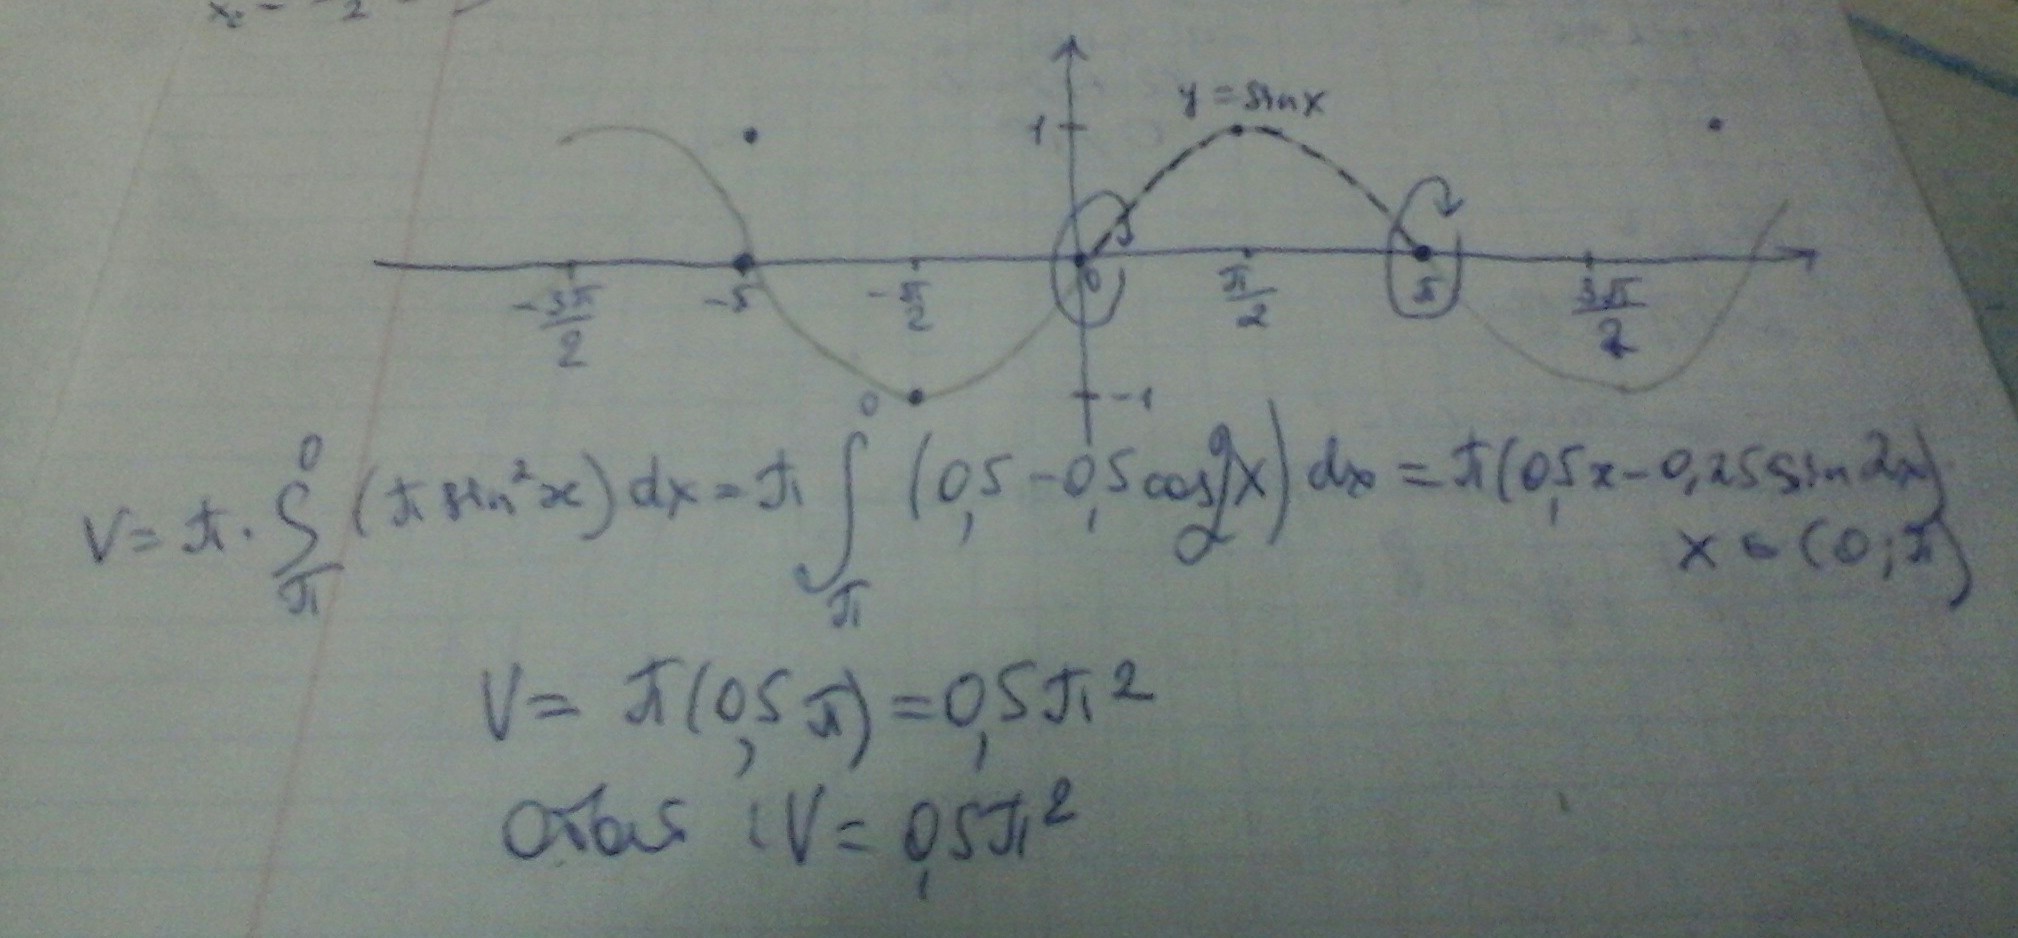 y = sin x
1
-3π/2 -π -π/2 0 π/2 π 3π/2
-1
V = π · ∫_π^0 (π sin² x) dx = π ∫_π^0 (0,5 - 0,5 cos 2x) dx = π(0,5x - 0,25 sin 2x)
x = (0; π)
V = π(0,5 π) = 0,5 π²
: V = 0,5 π²